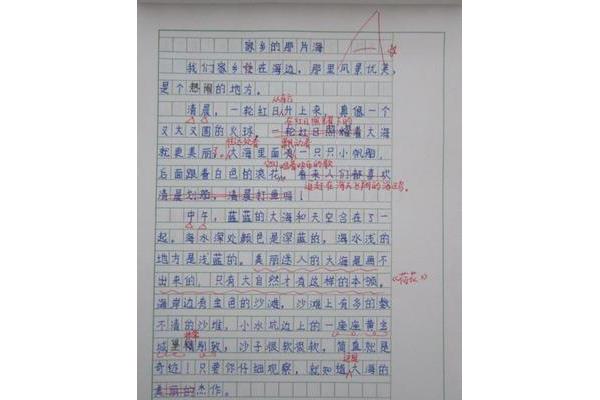 家乡的那片海
我们家乡便在海边，那里风景优美，
是个热闹的地方。
清晨，一轮红日升上来，真像一个
在红日照耀下的
又大又圆的火球，一轮红日照耀着大海
就更美丽了。大海里面是一只只小帆船，
后面跟着白色的浪花。看来人们都喜欢
清晨划船，清晨打鱼哪！
中午，蓝蓝的大海和天空合在了一
起，海水深处颜色是深蓝的，海水浅的
地方是浅蓝的。美丽迷人的大海是画不
出来的，只有大自然才有这样的本领。
《荷花》
海岸边有金色的沙滩，沙滩上有多的数
不清的沙堆，小水坑边上的一座座黄金
城堡精别致，沙子很软很软，简直就是
奇迹！只要你仔细观察，就知道大海的
美丽的杰作。